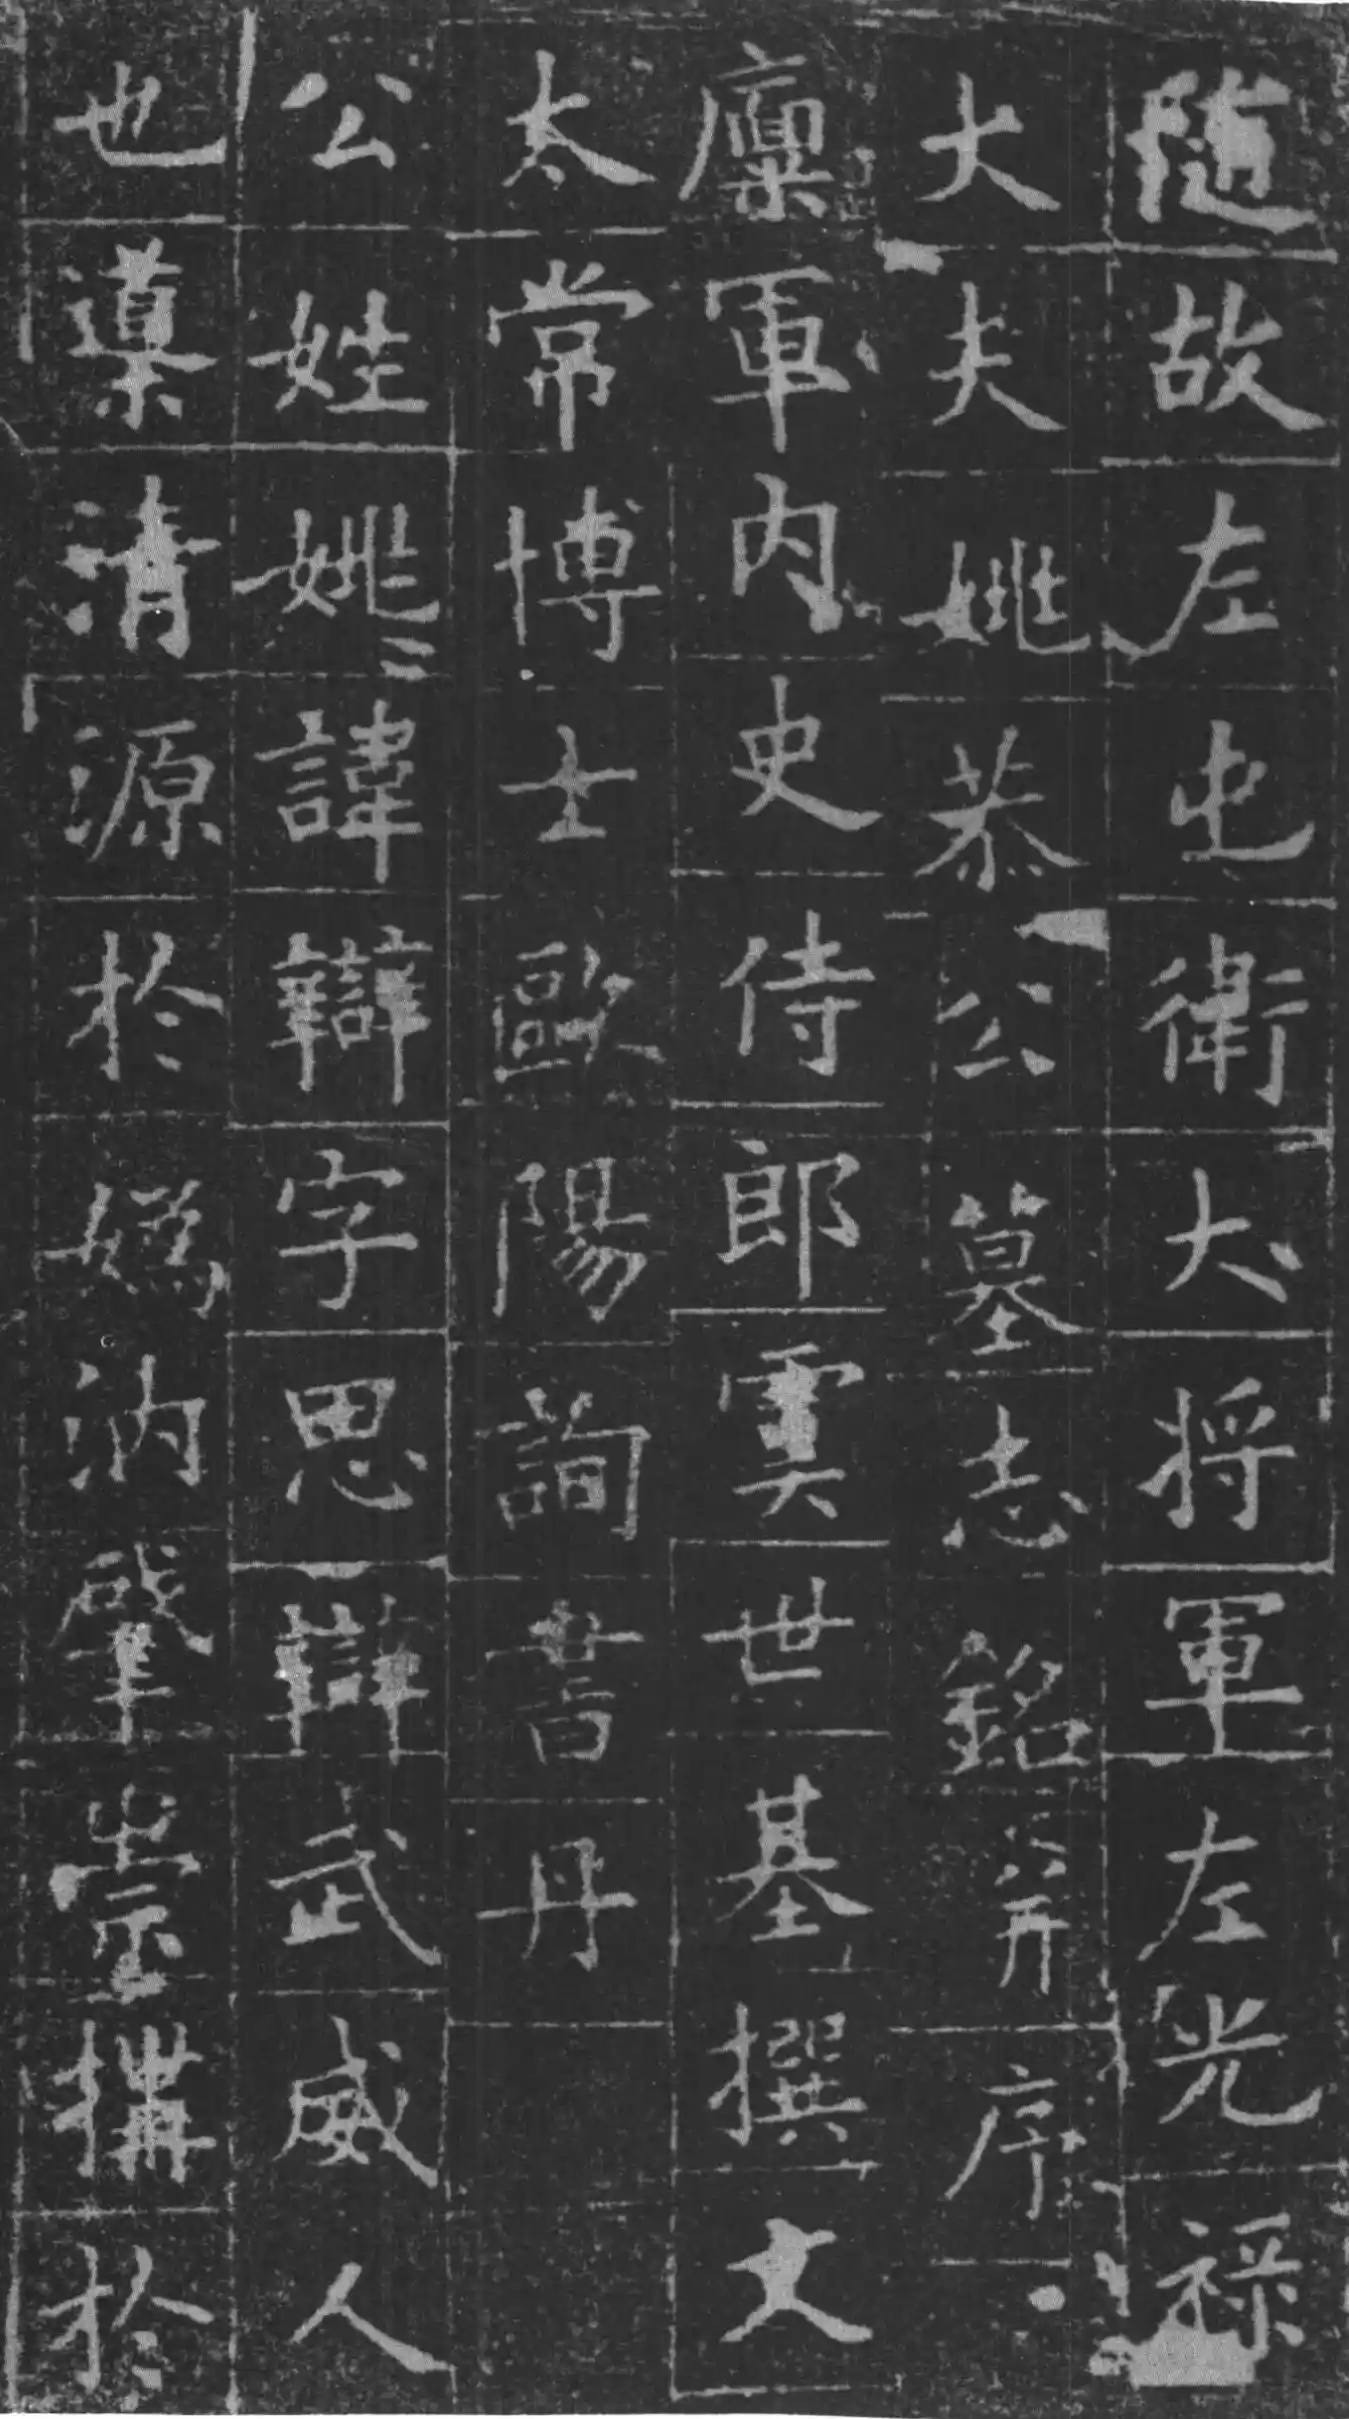 隨故左屯衛大將軍左光祿
大夫姚恭公墓志銘并序
廩軍內史侍郎虞世基撰文
太常博士歐陽詢書丹
公姓姚諱辯字思辯武威人
也導清源於媯汭肇崇構於